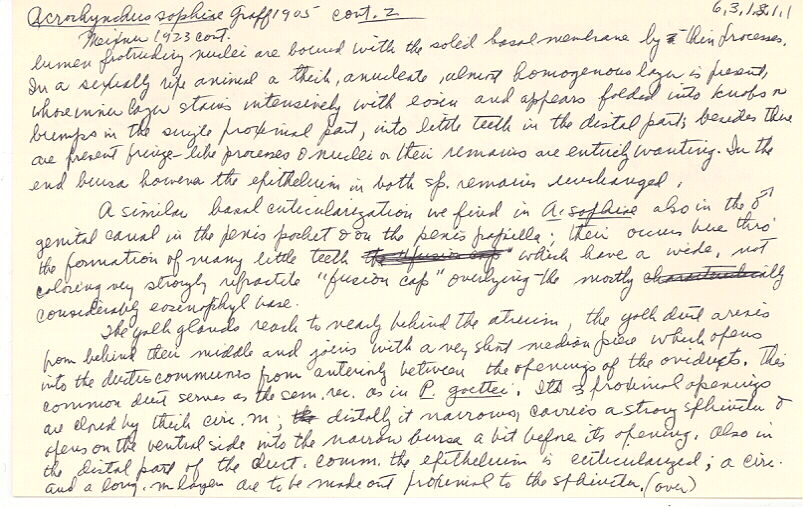 Acrorhynchus sophiae Graff 1905 cont. 2 6,3,1.8.1.1
Meixner 1923 cont.
lumen protruding nuclei are bound with the solid basal membrane by thin processes.
In a sexually ripe animal a thick, anucleate, almost homogenous layer is present,
whose inner layer stains intensively with eosin and appears folded into knobs or
bumps in the single proximal part, into little teeth in the distal part; besides there
are present fringe-like processes & nuclei or their remains are entirely wanting. In the
end bursa however the epithelium in both sp. remains unchanged.
A similar basal cuticularization we find in A. sophiae also in the ♂
genital canal in the penis pocket & on the penis papilla; their occurs here thro'
the formation of many little teeth which have a wide, not
coloring very strongly refractile "fusion cap" overlying the mostly
considerably eosinophyl base.
The yolk glands reach to nearly behind the atrium, the yolk duct arises
from behind their middle and joins with a very short median piece which opens
into the ductus communis from anteriorly between the openings of the oviducts. This
common duct serves as the sem. rec. as in P. goettei. Its 3 proximal openings
are closed by thick circ. m; distally it narrows, carries a strong sphincter &
opens on the ventral side into the narrow bursa a bit before its opening. Also in
the distal part of the duct. comm. the epithelium is cuticularized; a circ.
and a long. m layer are to be made out proximal to the sphincter. (over)